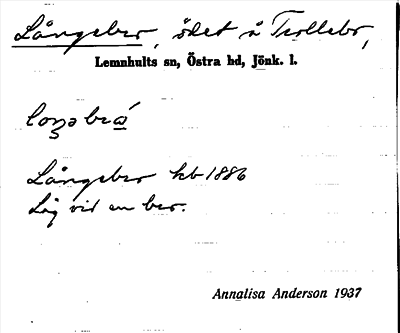 Långebro, ödet å Trollebo,
Lemnhults sn, Östra hd, Jönk. l.
Långebro kb 1886
Låg vid en bro.
Annalisa Anderson 1937